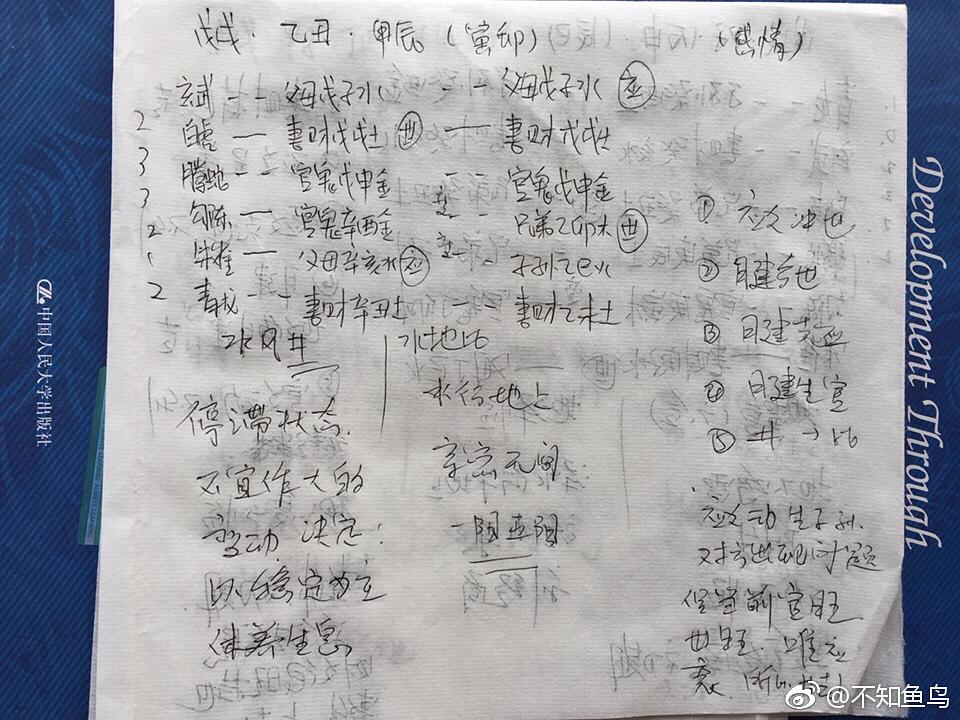 戊戌·乙丑·甲辰(寅卯) (感情)
玄武 -- 父母戊子水 -- 父母戊子水 应
2 白虎 — 妻财戊戌土 世 — 妻财戊戌土
3 腾蛇 -- 官鬼戊申金 -- 官鬼戊申金
3 勾陈 — 官鬼辛酉金 -- 兄弟乙卯木 世
2 朱雀 — 父母辛亥水 应 -- 子孙乙巳火
2 青龙 -- 妻财辛丑土 -- 妻财乙未土
水风井 水地比
停滞状态
不宜作大的
变动 决定
以稳定为主
休养生息
水行地上
亲密无间
① 应爻冲世
② 日建合世
③ 日建克应
④ 日建生官
⑤ 井→比
应爻动生子孙
对方出现问题
官旺
世旺 唯应
衰
中国人民大学出版社
Development Through
@不知鱼鸟